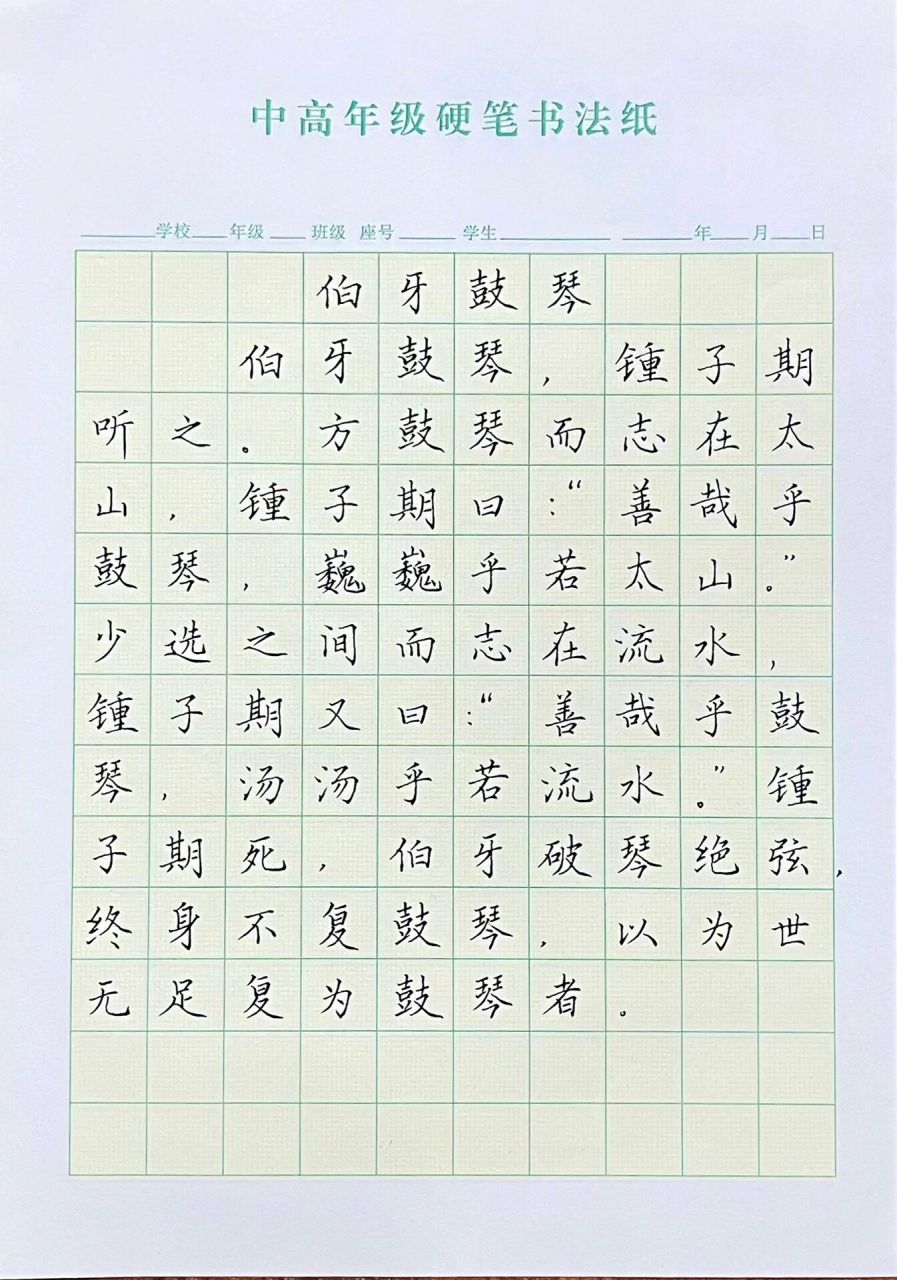 中高年级硬笔书法纸
学校 年级 班级 座号 学生 年 月 日
伯牙鼓琴
伯牙鼓琴，锺子期
听之。方鼓琴而志在太
山，锺子期曰：“善哉乎
鼓琴，巍巍乎若太山。”
少选之间而志在流水，
锺子期又曰：“善哉乎鼓
琴，汤汤乎若流水。”锺
子期死，伯牙破琴绝弦，
终身不复鼓琴，以为世
无足复为鼓琴者。